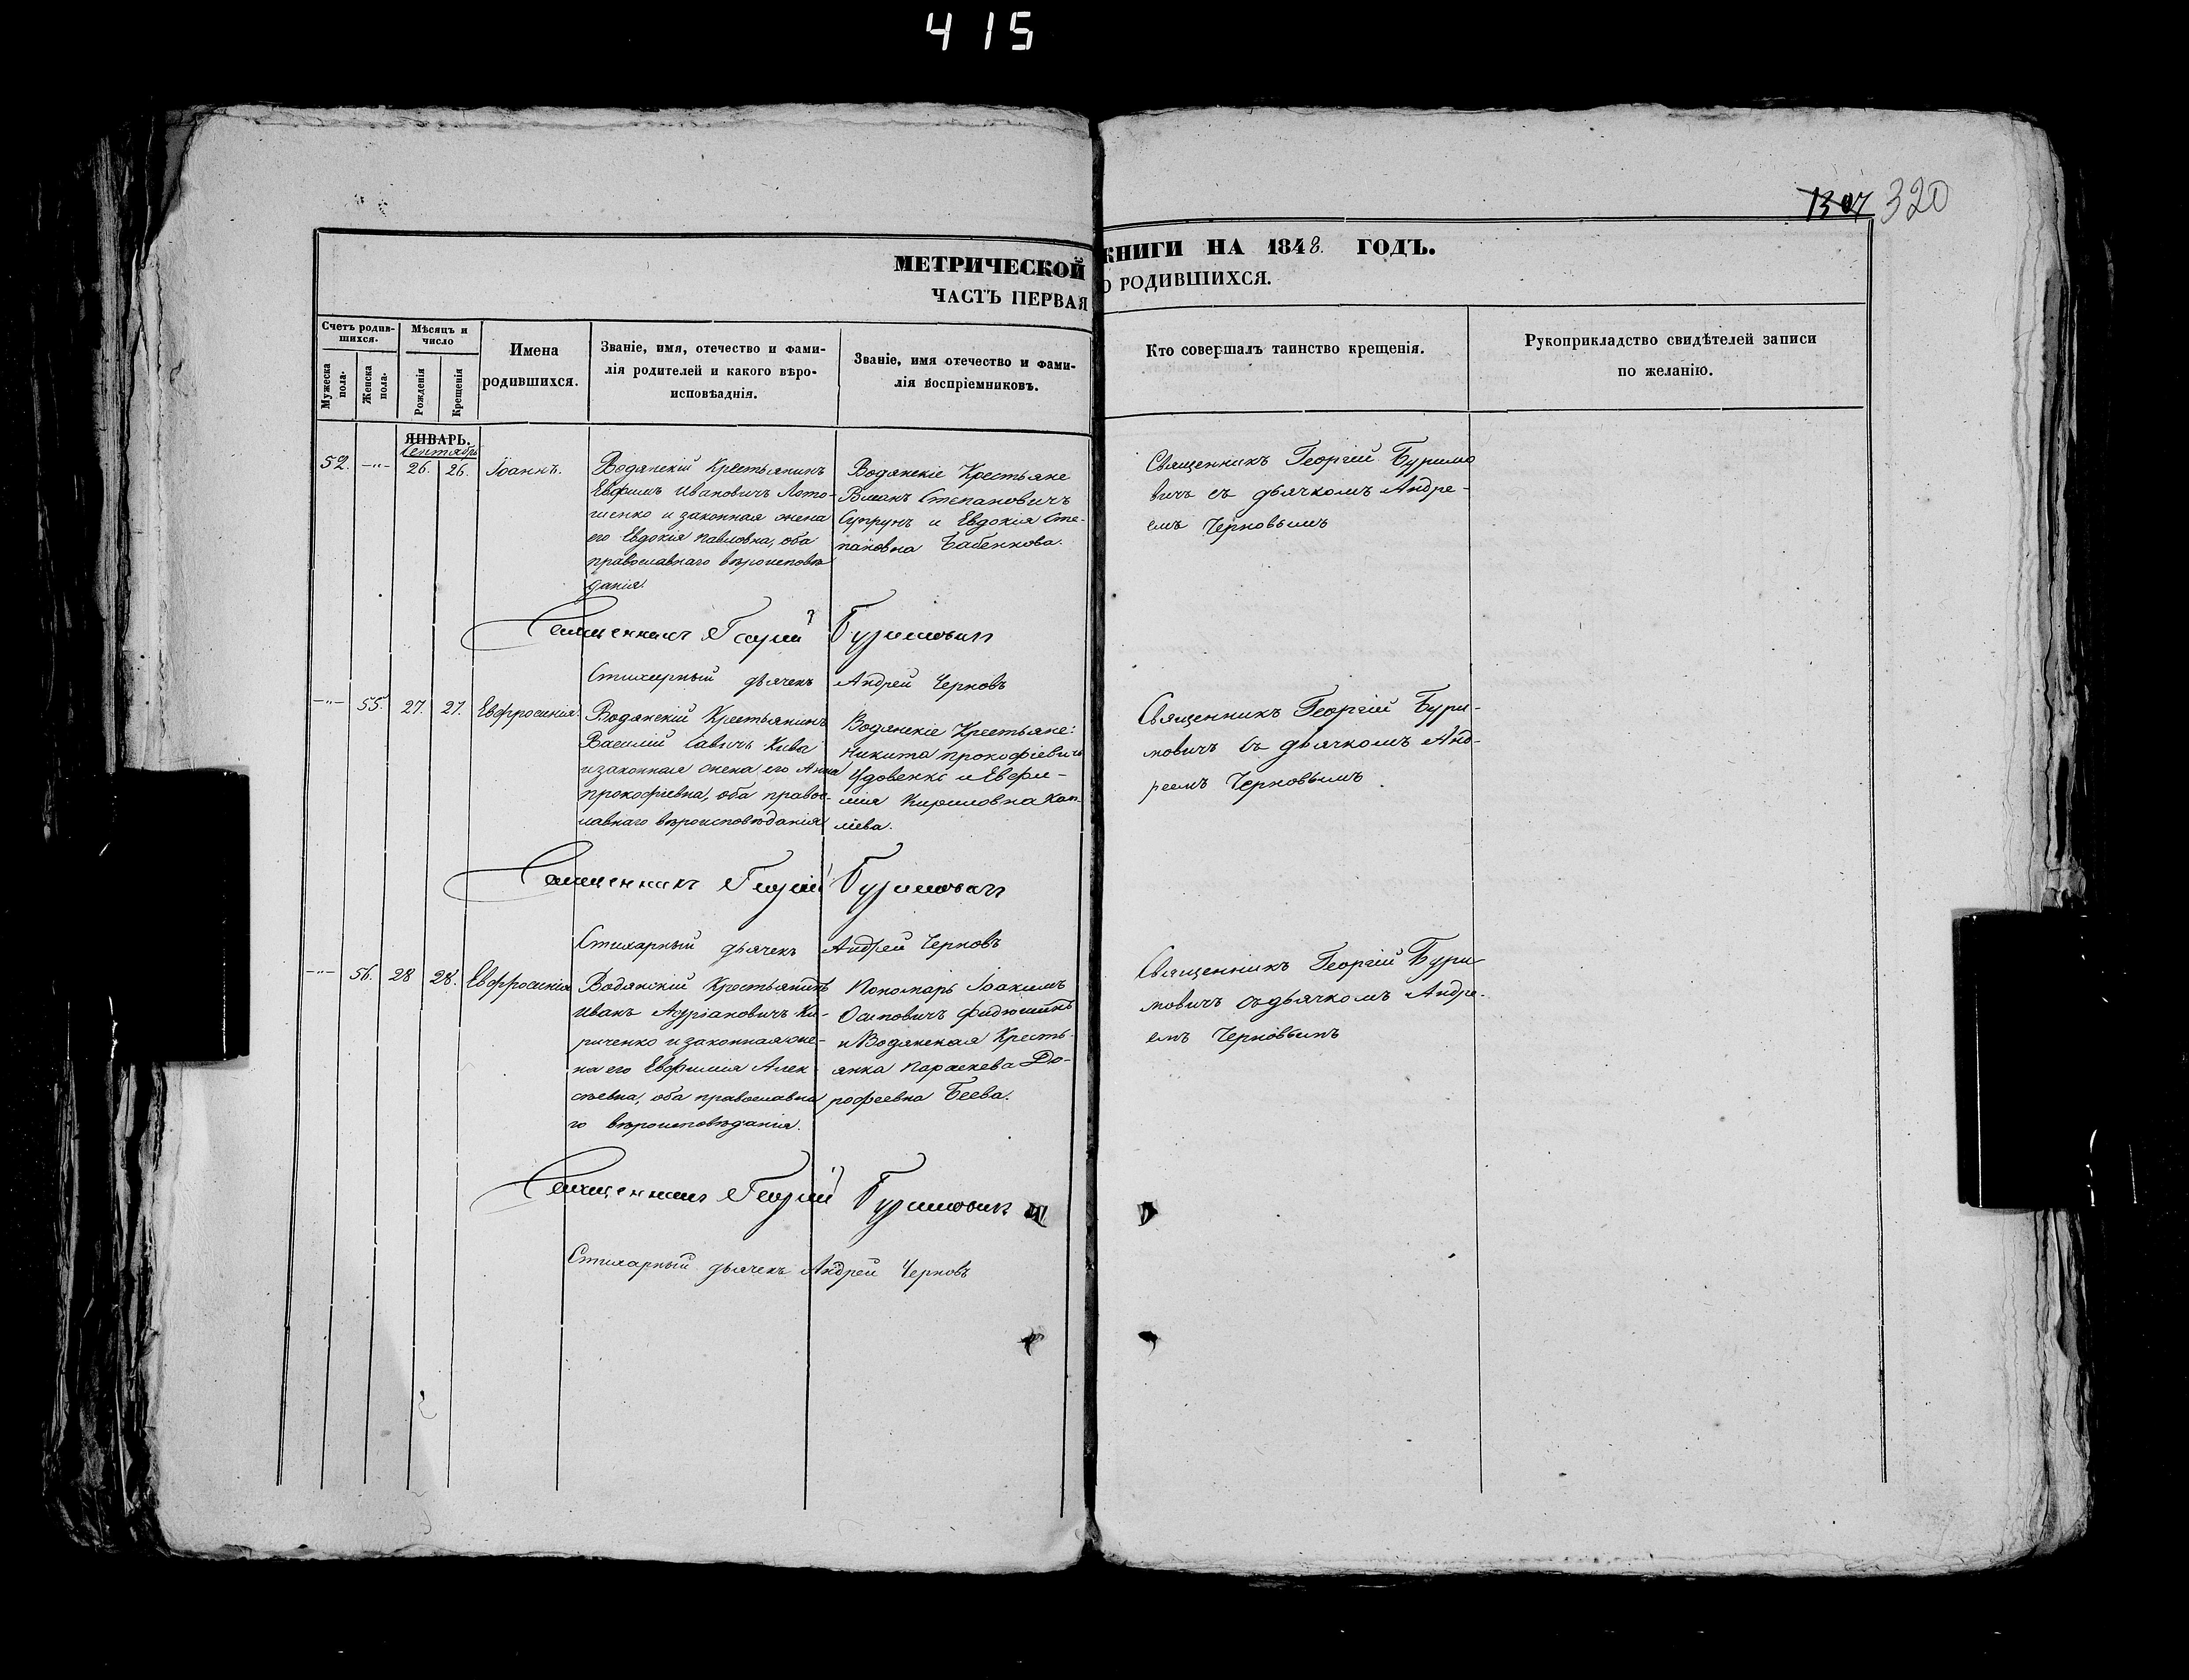 415
1307 320
МЕТРИЧЕСКОЙ КНИГИ НА 1848. ГОДЪ.
ЧАСТЬ ПЕРВАЯ О РОДИВШИХСЯ.
Счетъ родив-
шихся.
Мужеска
пола.
Женска
пола.
Мѣсяцъ и
число
Рожденія
Крещенія
Имена
родившихся.
Званіе, имя, отечество и фами-
лія родителей и какого вѣро-
исповѣаднія.
Званіе, имя отечество и фами-
лія воспріемниковъ.
Кто совершалъ таинство крещенія.
Рукоприкладство свидѣтелей записи
по желанію.
ЯНВАРЬ.
Сентябрь
52. -"- 26. 26. Іоаннъ.
Водянскій Крестьянинъ
Евфимъ Ивановичъ Лото-
шенко и законная жена
его Евдокія Павловна, оба
православнаго вѣроисповѣ
данія.
Водянскіе Крестьяне
Степановичъ
Супрунъ и Евдокія Сте-
пановна Бабенкова.
Священникъ Георгій Буримо
вичъ съ дьячкомъ Андре-
емъ Черновымъ
Священникъ Георгій Буримовичъ
Стихарный дьячекъ Андрей Черновъ
-"- 55. 27. 27. Евфросинія.
Водянскій Крестьянинъ
Василій Савичъ Кива
и законная жена его Анна
Прокофіевна, оба правос-
лавнаго вѣроисповѣданія
Водянскіе Крестьяне:
Никита Прокофіевичъ
Удовенко и Евфи-
мія Кириловна Кап-
лієва.
Священникъ Георгій Бури-
мовичъ съ дьячкомъ Анд-
реемъ Черновымъ
Священникъ Георгій Буримовичъ
Стихарный дьячекъ Андрей Черновъ
-"- 56. 28 28. Евфросинія
Водянскій Крестьянинъ
Иванъ Адріановичъ Ки-
риченко и законная же-
на его Евфимія Алек-
сѣевна, оба православна
го вѣроисповѣданія.
Пономарь Іоакимъ
Осиповичъ Федюшинъ
и Водянская Кресть-
янка Параскева До-
рофеевна Беева.
Священникъ Георгій Бури-
мовичъ съ дьячкомъ Андре-
емъ Черновымъ
Священникъ Георгій Буримовичъ
Стихарный дьячекъ Андрей Черновъ